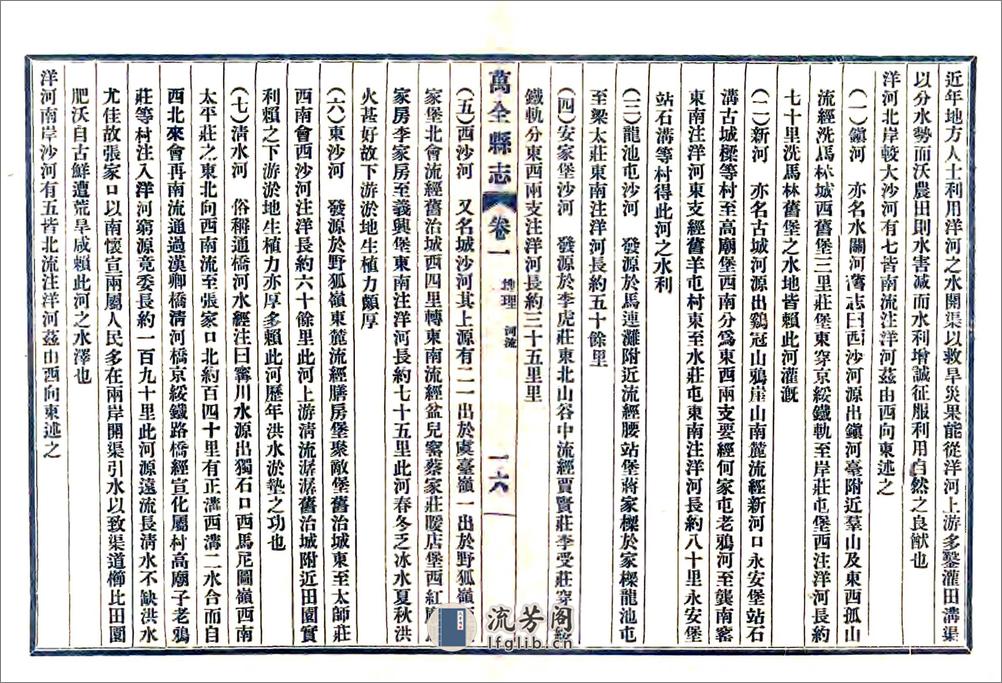 近年地方人士利用洋河之水開渠以救旱災果能從洋河上游多鑿灌田溝渠
以分水勢而沃農田則水害減而水利增誠征服利用自然之良猷也
洋河北岸較大沙河有七皆南流注洋河茲由西向東述之
(一)鎭河　亦名水關河舊志曰西沙河源出鎭河臺附近羣山及東西孤山
流經洗馬林城西舊堡三里莊堡東穿京綏鐵軌至岸莊屯堡西注洋河長約
七十里洗馬林舊堡之水地皆賴此河灌漑
(二)新河　亦名古城河源出鷄冠山鴉崖山南麓流經新河口永安堡站石
溝古城檁等村至高廟堡西南分爲東西兩支要經何家屯老鴉河至龔南窰
東南注洋河東支經舊羊屯村東至水莊屯東南注洋河長約八十里永安堡
站石溝等村得此河之水利
(三)龍池屯沙河　發源於馬連灘附近流經腰站堡蔣家檁於家檁龍池屯
至梁太莊東南注洋河長約五十餘里
(四)安家堡沙河　發源於李虎莊東北山谷中流經賈賢莊李受莊穿
鐵軌分東西兩支注洋河長約三十五里里
萬全縣志　卷一　地理　河流　一六
(五)西沙河　又名城沙河其上源有二一出於虞臺嶺一出於野狐嶺
家堡北會流經舊治城西四里轉東南流經盆兒窰蔡家莊暖店堡西紅
家房李家房至義興堡東南注洋河長約七十五里此河春冬乏冰水夏秋洪
火甚好故下游淤地生植力頗厚
(六)東沙河　發源於野狐嶺東麓流經膳房堡聚敵堡舊治城東至太師莊
西南會西沙河注洋長約六十餘里此河上游清流潺潺舊治城附近田園實
利賴之下游淤地生植力亦厚多賴此河歷年洪水淤墊之功也
(七)清水河　俗稱通橋河水經注曰寗川水源出獨石口西馬尼圖嶺西南
太平莊之東北向西南流至張家口北約百四十里有正溝西溝二水合而自
西北來會再南流通過漢卿橋清河橋京綏鐵路橋經宣化屬村高廟子老鴉
莊等村注入洋河窮源竟委長約一百九十里此河源遠流長清水不缺洪水
尤佳故張家口以南懷宣兩屬人民多在兩岸開渠引水以致渠道櫛比田園
肥沃自古鮮遭荒旱咸賴此河之水澤也
洋河南岸沙河有五皆北流注洋河茲由西向東述之
流芳阁
lfglib.cn